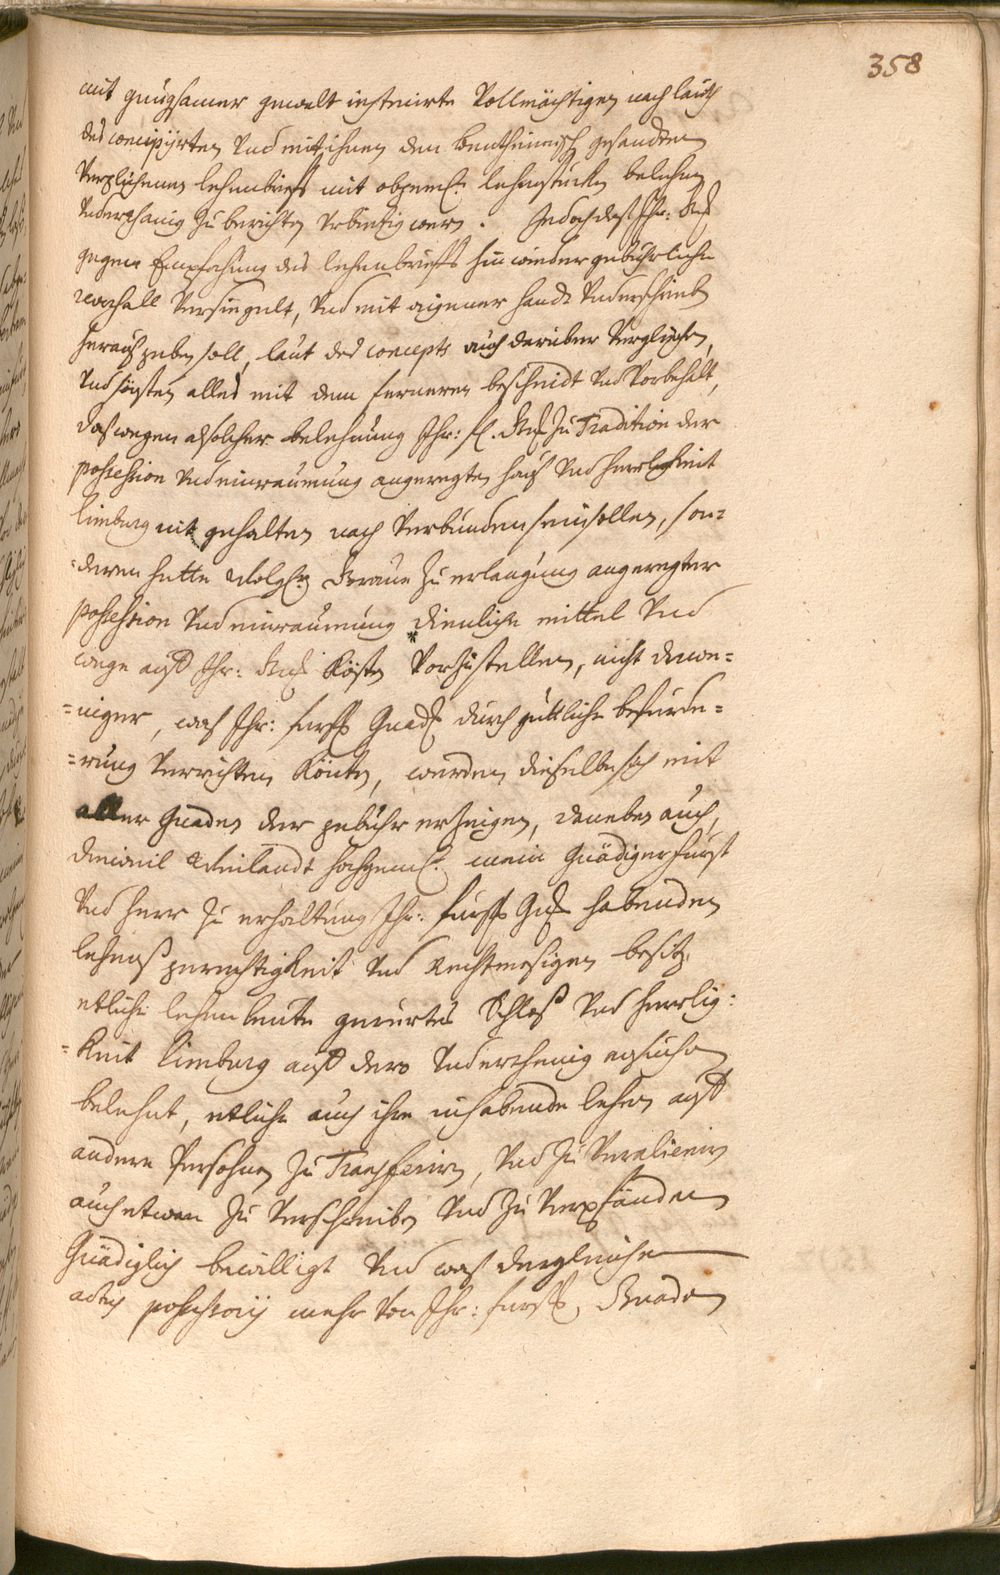 358
mit gnugsamer gewalt instruirte Vollmächtigen nach lauth
des concipijrten Vnd mit ihnen den Bentheimisch gesandten
Verglichenen lehenbrieffs mit obgemel. lehenstücken belehnen
Vnderthanig zu berichten Vrbietig wern. Jedoch das Ihr: Gnd
gegen Empfahung des lehenbrieffs hinwieder gebührliche
reversall Versiegelt, Vnd mit eigener handt Vnderschrieben
herauß geben soll, laut des concepts auch darüber Verglichen,
Vnd sönsten alles mit dem ferneren bescheidt Vnd Vorbehalt,
das wegen alsolcher belehnung Ihr: fl. Gnd zu Tradition der
possession Vnd einraumung angeregten hauß Vnd herrligkeit
limburg nit gehalten noch Verbunden sein sollen, son=
=deren hette Wolgr. Graue zu erlangung angeregter
possession Vnd einraumung dienliche mittel Vnd
wege auß Ihr: Gnd Kösten Vorzustellen, nicht dewe=
=niger, was Ihr: furstl Gnad durch güttliche befürde=
=rung Verrichten Könten, werden dieselbe sich mit
aller Gnaden der gebühr erzeigen, daneben auch,
dieweil Weilandt hochgeml. mein Gnädiger Fürst
Vnd Herr zu erhaltung Ihr: furstl Gnd habenden
lehenß gerechtigkeit Vnd Rechtmesigen besitz,
etliche lehenleute gerurtes Schloß Vnd herrlig:
=Keit limburg auß dero Vnderthenig ersuchen
belehnt, etliche auch ihre inhabende lehen auß
andere Persohnen zu Transferiren, Vnd zu Veralieniren
auch etwan zu Verschreiben Vnd zu Verpfänden
Gnädiglich bewilligt Vnd was dergleichen
actus possessorij mehr von Ihr: furstl, Gnaden